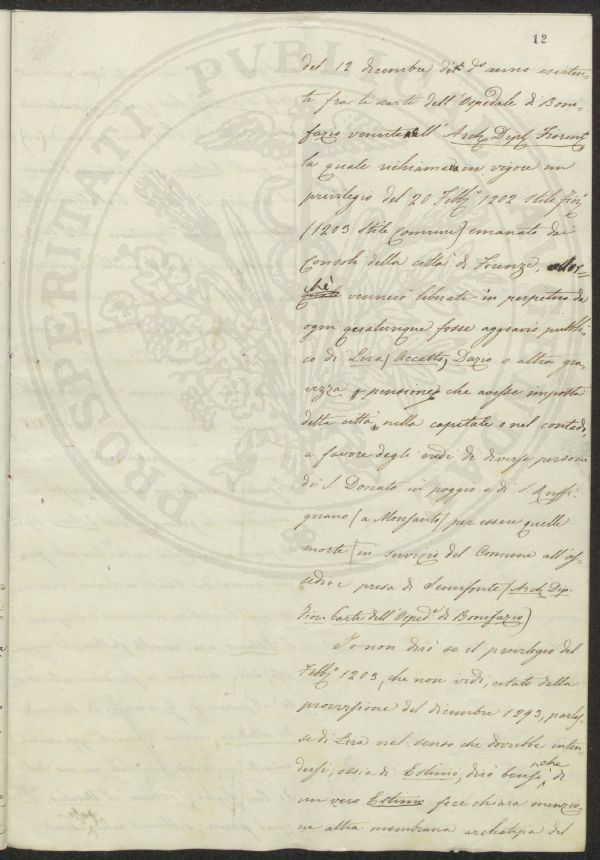 12
del 12 dicembre di d.º anno esisten-
te fra le carte dell'Ospedale di Boni-
fazio venute nell' Arch. Dipl. Fiorent.
la quale richiama in vigore un
privilegio del 20 Febb.º 1202 stile Fior.º
(1203 stile Comune) emanato dai
Consoli della città di Firenze, allor-
chè vennero liberati in perpetuo da
ogni qualunque fosse aggravio pubbli-
co di Lira, Accatto, Dazio o altra gra-
vezza, pensione che avesse imposta
detta città, nella capitale o nel contado,
a favore degli eredi di diverse persone
di S. Donato in poggio e di S. Ruffi-
gnano (a Monsanto) per essere quelle
morte in servizio del Comune all'as-
sedio e presa di Semifonte (Arch. Dip.
Fior. Carte dell'Osped.º di Bonifazio)
Io non dirò se il privilegio del
Febb.º 1203, che non vidi, citato dalla
provvisione del dicembre 1293, parlas-
se di Lira nel senso che dovrebbe inten-
dersi, ossia di Estimo, dirò bensì che di
un vero Estimo fece chiara menzio-
ne altra membrana archetipa del
PROSPERITATI PVBLICAE